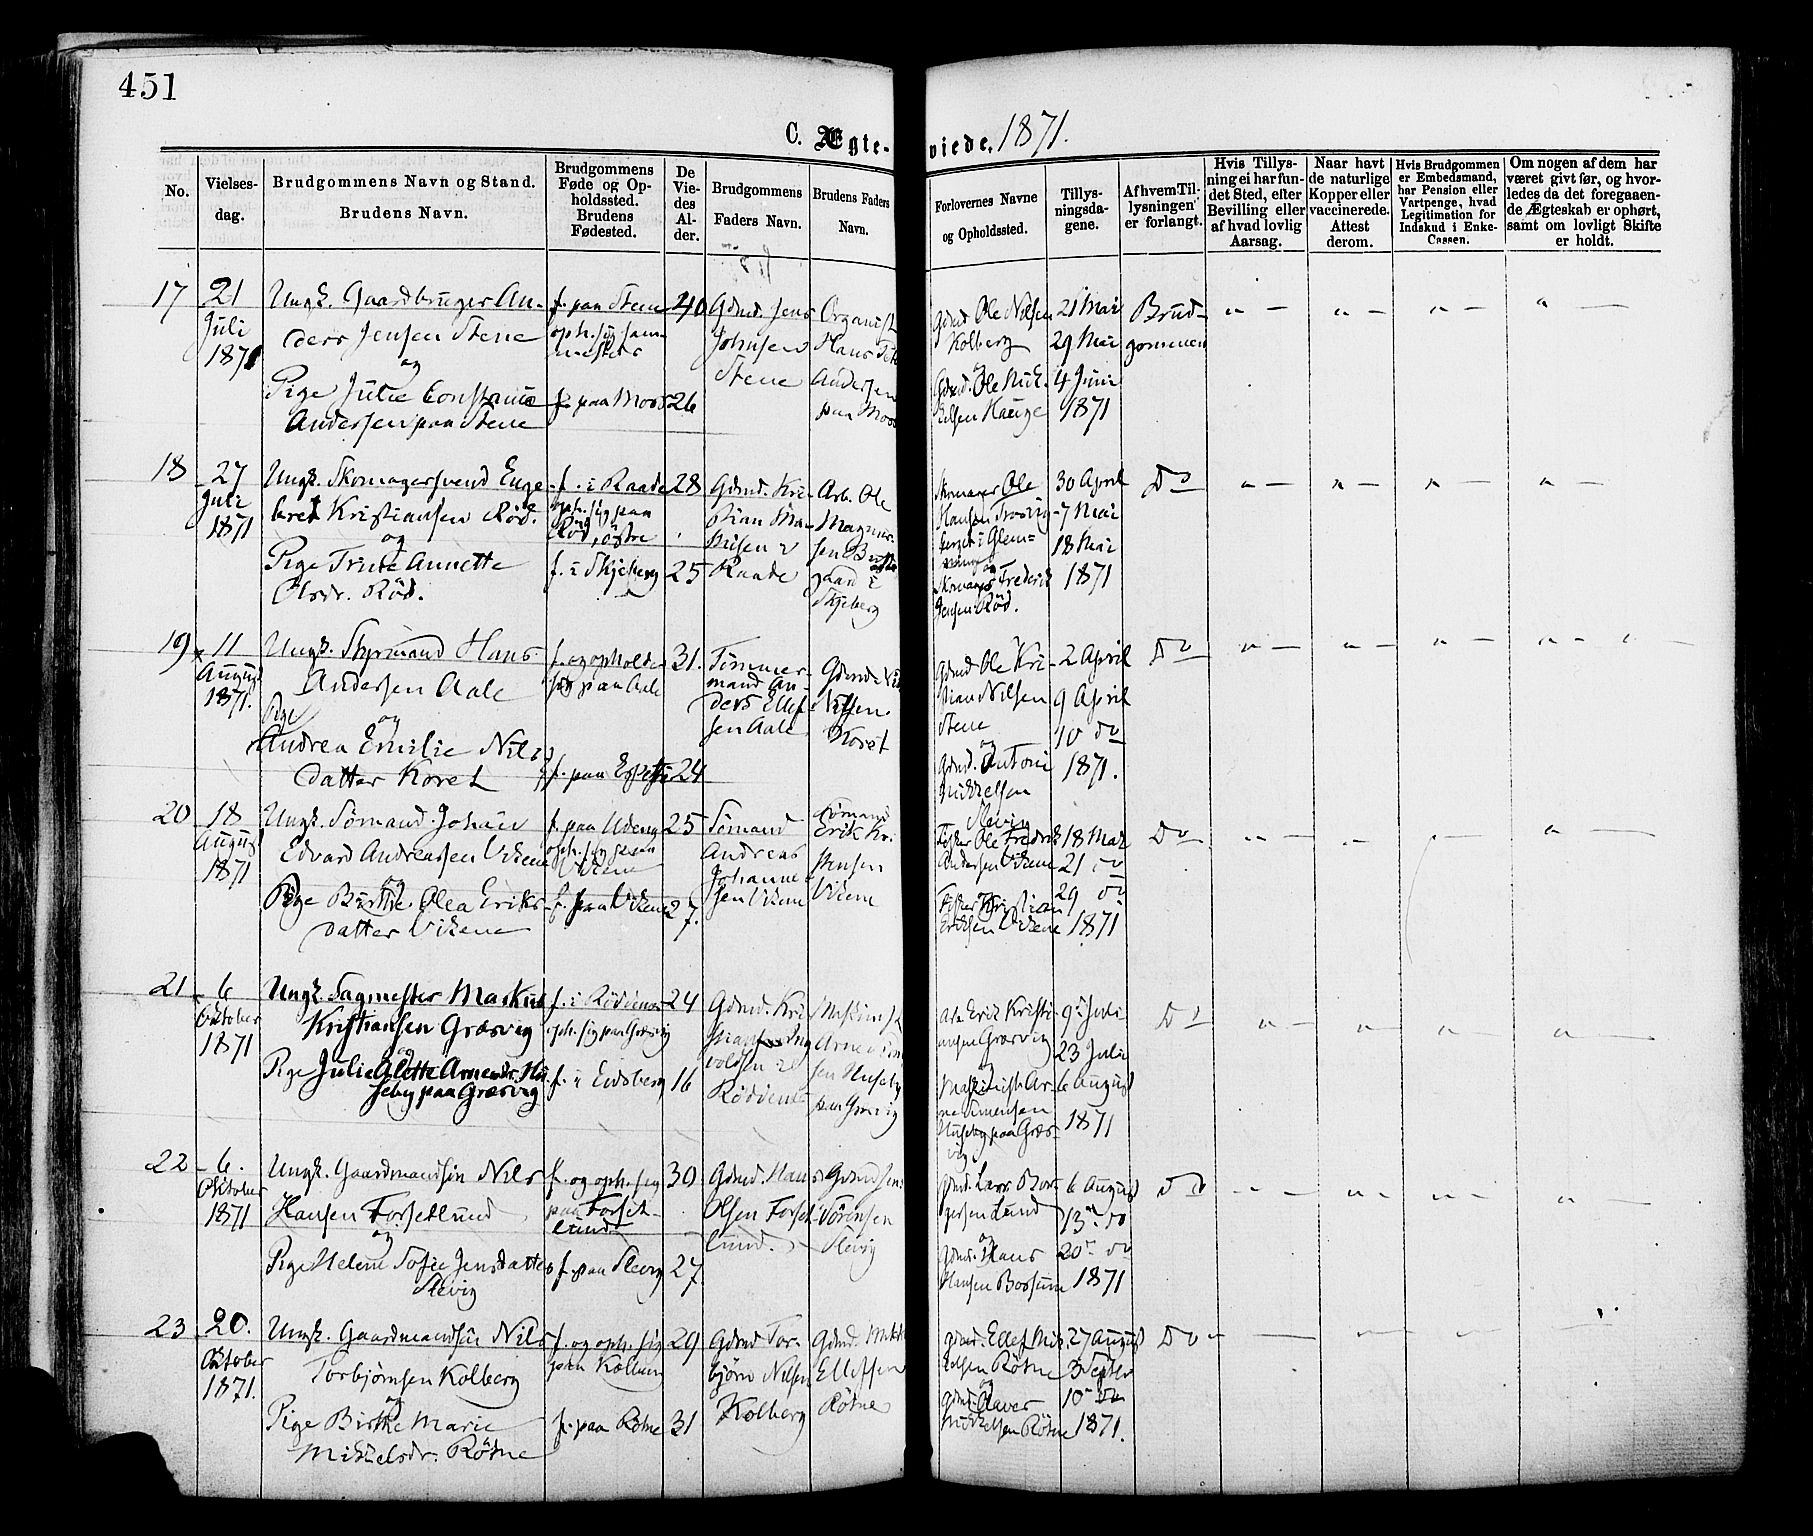 451
C. Ægte- viede, 1871.
No.
Vielses-
dag.
Brudgommens Navn og Stand.
Brudens Navn.
Brudgommens
Føde og Op-
holdssted.
Brudens
Fødested.
De
Vie-
des
Al-
der.
Brudgommens
Faders Navn.
Brudens Faders
Navn.
Forlovernes Navne
og Opholdssted.
Tillys-
ningsda-
gene.
Af hvem Til-
lysningen
er forlangt.
Hvis Tillys-
ning ei har fun-
det Sted, efter
Bevilling eller
af hvad lovlig
Aarsag.
Naar havt
de naturlige
Kopper eller
vaccinerede.
Attest
derom.
Hvis Brudgommen
er Embedsmand,
har Pension eller
Vartpenge, hvad
Legitimation for
Indskud i Enke-
Cassen.
Om nogen af dem har
været givt før, og hvor-
ledes da det foregaaen-
de Ægteskab er ophørt,
samt om lovligt Skifte
er holdt.
17
21
Juli
1871
Ungk. Gaardbruger An-
ders Jensen Stene
og
Pige Julie Constance
Andersen paa Stene
f. paa Stene
oph. sig sam-
mesteds
f. paa Moss
40
26
Gdmd. Jens
Johnsen
Stene
Organist
Hans
Andersen
paa Moss
Gdmd Ole Nilsen
Kolberg
Gdmd. Ole Mik-
kelsen Hauge
21 Mai
29 Mai
4 Juni
1871
Brud-
gommen
18
27
Juli
1871
Ungk. Skomagersvend Enge-
bret Kristiansen Röd.
og
Pige Trine Annette
Olsdr. Röd.
f. i Raade
oph. sig paa
Röd, östre
f. i Skjeberg
28
25
Gdmd. Kri-
stian
i
Raade
Arb. Ole
Magnus-
sen
gaard i
Skjeberg
Skomager Ole
Hansen Trosvig-
berget i Glem-
minge
Skomager Frederik
Jensen Röd.
30 April
7 Mai
18 Mai
1871
Do
19
11
August
1871.
Ungk. Styrmand Hans
Andersen Aale
og
Pige
Andrea Emilie Nils-
datter Koret
f. og opholder
sig paa Aale
f. paa
31.
24
Tömmer-
mand An-
ders Ellef-
sen Aale
Gdmd.
Nilsen
Koret
Gdmd Ole Kri-
stian Nilsen
Stene
og
Gdmd. Antoni
Mikkelsen
Slevig
2 April
9 April
10 do
1871.
Do
20
18
August
1871
Ungk. Sömand Johan
Edvard Andreassen Vikene
og
Pige Birthe Olea Eriks-
datter Vikene
f. paa Udeng
oph. sig paa
Vikene
f. paa Vikene
25
27.
Sömand
Andreas
Johanne-
sen Vikene
Sömand
Erik Kri-
stensen
Vikene
Fisker Ole Fredrik
Andersen Vikene
og
Fisker Kristian
Eriksen Vikene
18 Mai
21 do
29 do
1871
Do
21
6
Oktober
1871
Ungk. Sagmester Markus
Kristiansen Græsvig
og
Pige Julie Alette Arnesdr. Hu-
seby paa Græsvig
f. i Rödenæs
oph. sig paa Græsvig
f. i Eidsberg
24
16
Gdmd. Kri-
stian
voldsen i
Rödenæs
Maskinist
Arne Simen-
sen Huseby
paa Græsvig
Arb. Erik Kristi-
ansen Græsvig
og
Maskinist Ar-
ne Simensen
Huseby paa Græs-
vig
9 Juli
23 Juli
6 August
1871
Do
22
6.
Oktober
1871
Ungk. Gaardmandsön Nils
Hansen Torsetlund
og
Pige Helene Sofie Jensdatter
Slevig
f. og oph. sig
paa Torset-
lund
f. paa Slevig
30
27.
Gdmd. Hans
Olsen Torset-
lund.
Gdmd Jens
Sörensen
Slevig
Gdmd. Lars Bor-
gersen Lund
og
Gdmd. Hans
Hansen Bossum
6 August
13 do
20 do
1871
Do
23
20.
Oktober
1871.
Ungk. Gaardmandsön Nils
Torbjörnsen Kolberg
og
Pige Birthe Marie
Mikkelsdr. Rötne
f. og oph. sig
paa Kolberg
f. paa Rötne
29
31
Gdmd Tor-
björn Nilsen
Kolberg
Gdmd. Mikkel
Ellefsen
Rötne
Gdmd. Ellef Mik-
kelsen Rötne
og
Gdmd.
Mikkelsen Rötne
27 August
3 Septbr
10 do
1871.
Do